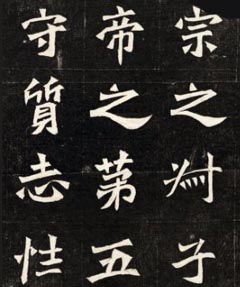 宗之子
帝之第五
守質志性